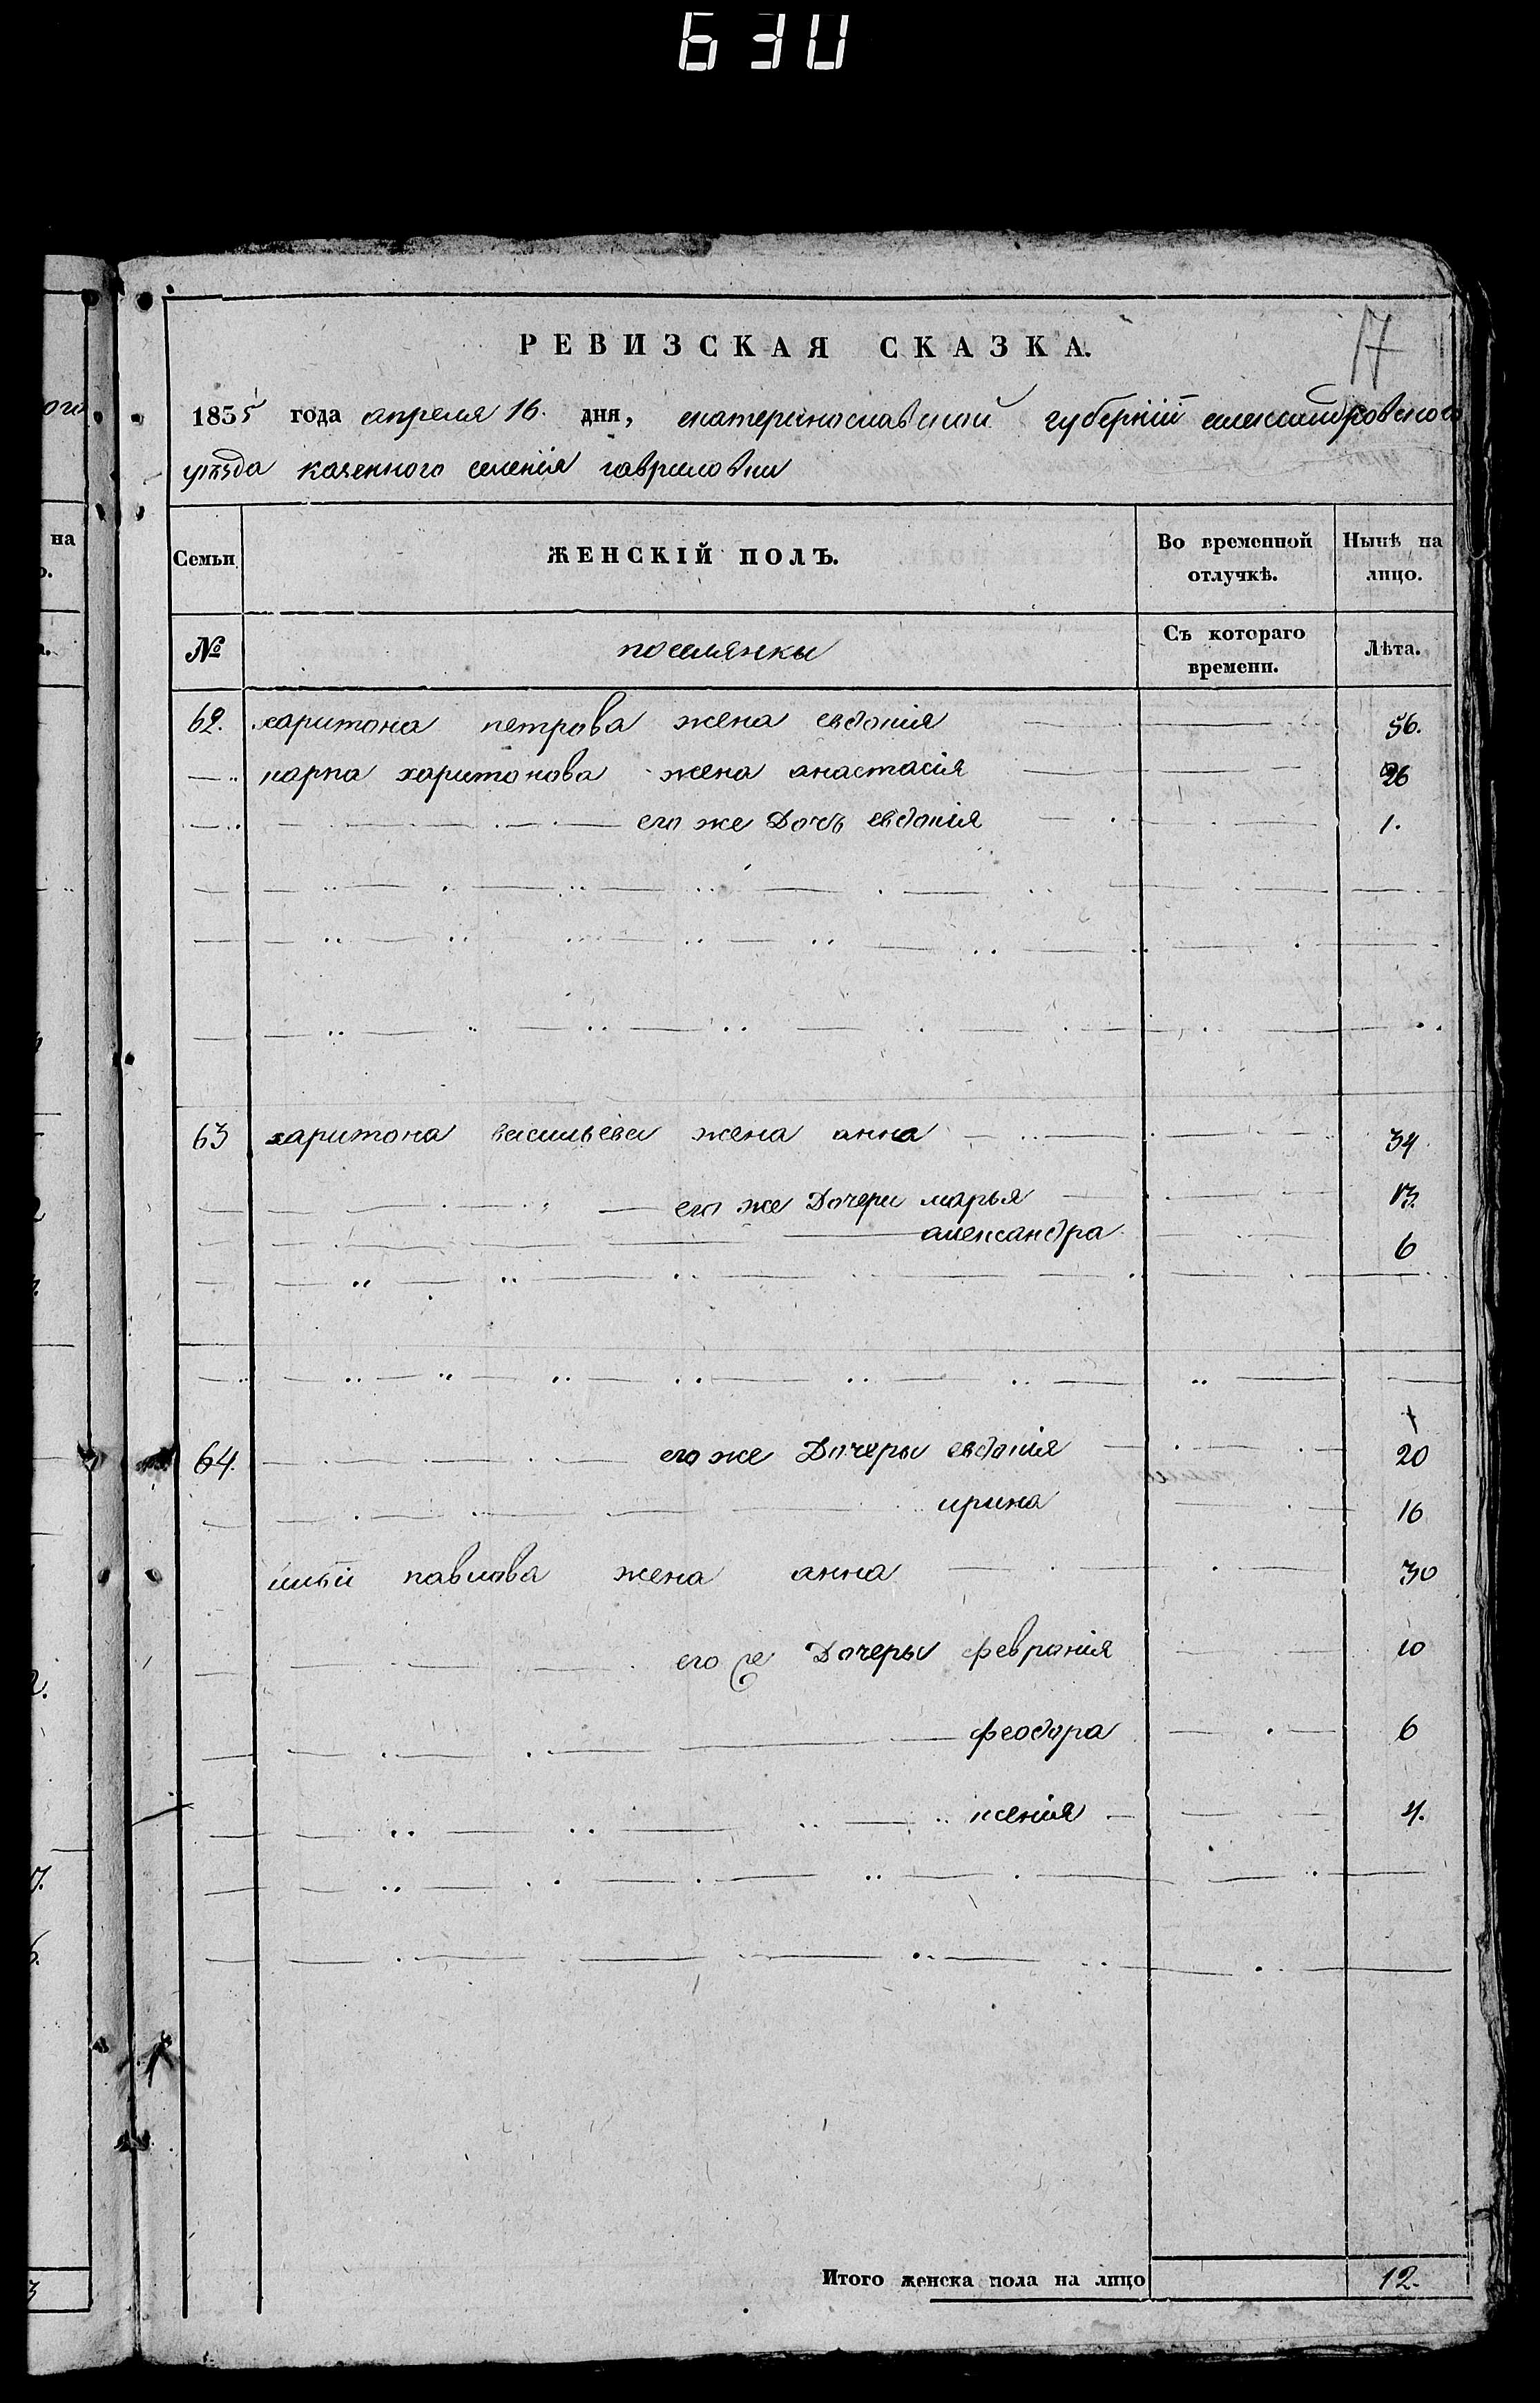 630
РЕВИЗСКАЯ СКАЗКА.
17
1835 года апреля 16. дня, екатеринославской губерніи александровского
уѣзда казенного селенія гавриловки
Семьи ЖЕНСКІЙ ПОЛЪ. Во временной отлучкѣ. Нынѣ на лицо.
№ поселянки Съ котораго времени. Лѣта.
62. харитона петрова жена евдокія 56.
карпа харитонова жена анастасія 26
его же Дочь евдокія 1.
63 харитона васильева жена анна 34
его же Дочери марья 13.
александра 6
64. его же Дочеры евдокія 20
ирина 16
ильи павлова жена анна 30
его же Дочеры феврания 10
феодора 6
ксенія 4.
Итого женска пола на лицо 12.